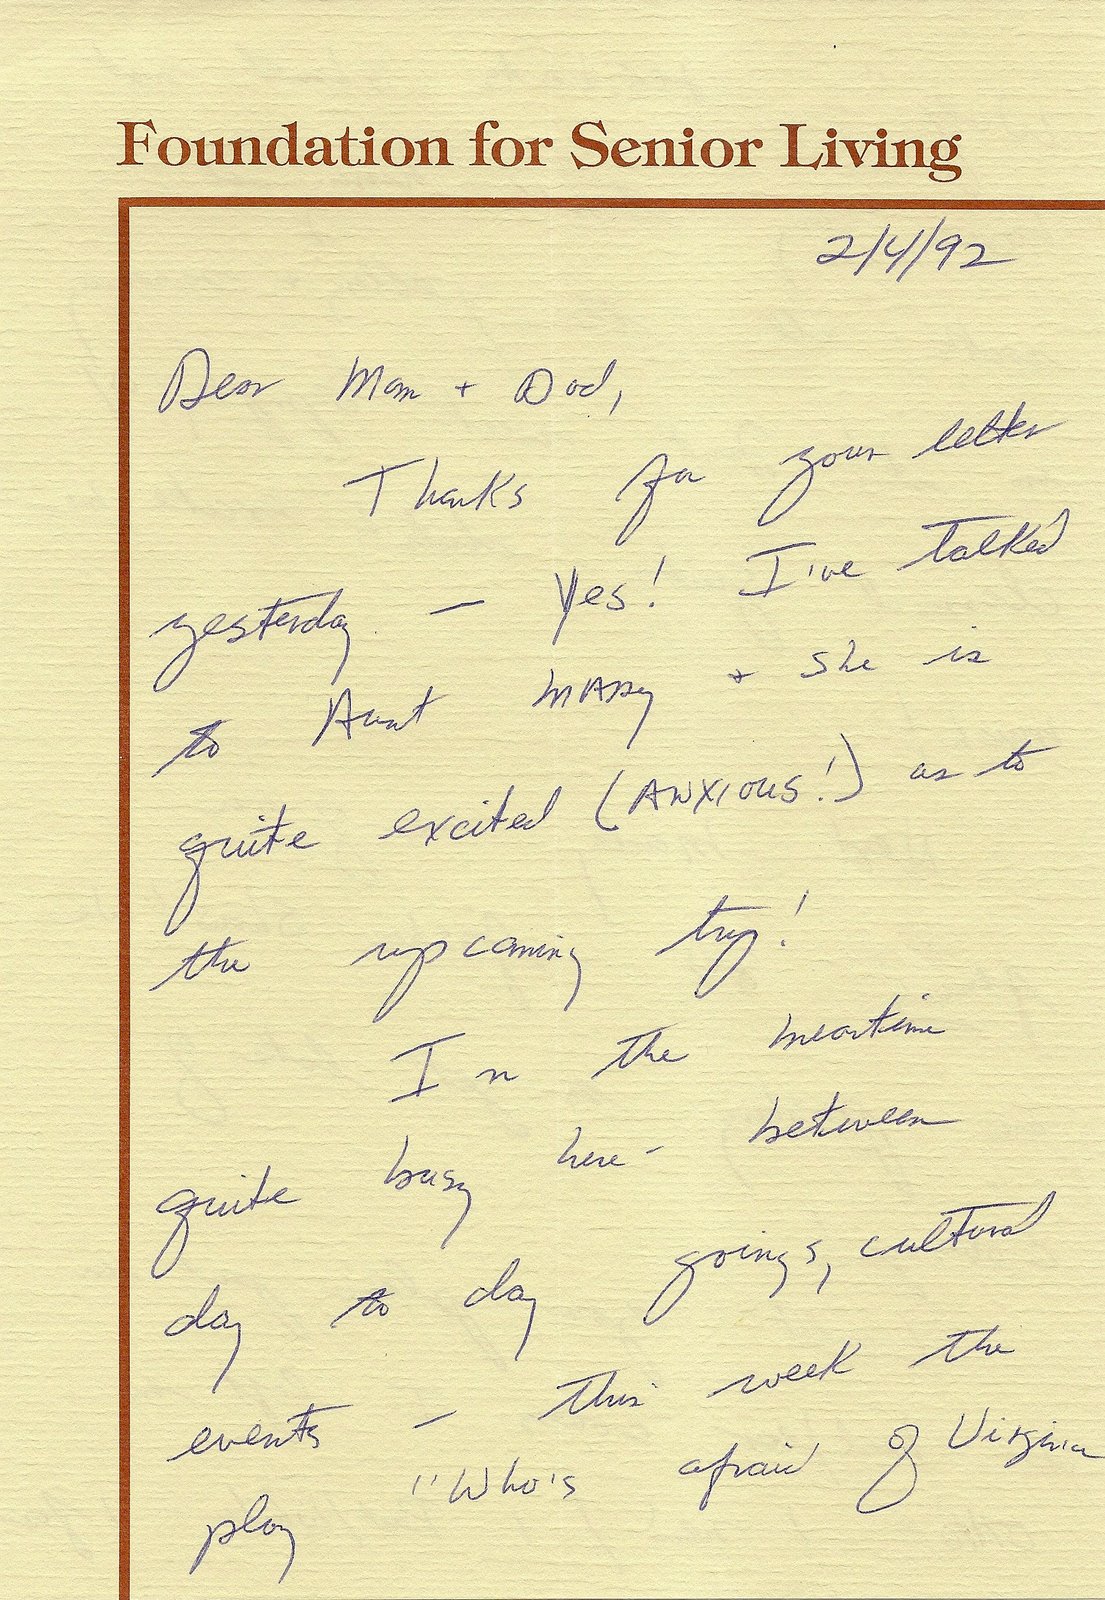 Foundation for Senior Living
2/4/92
Dear Mom + Dad,
Thanks for your letter
yesterday — Yes! I've talked
to Aunt MARY + she is
quite excited (ANXIOUS!) as to
the upcoming trip!
In the meantime
quite busy here - between
day to day goings, cultural
events — this week the
play "Who's afraid of Virginia